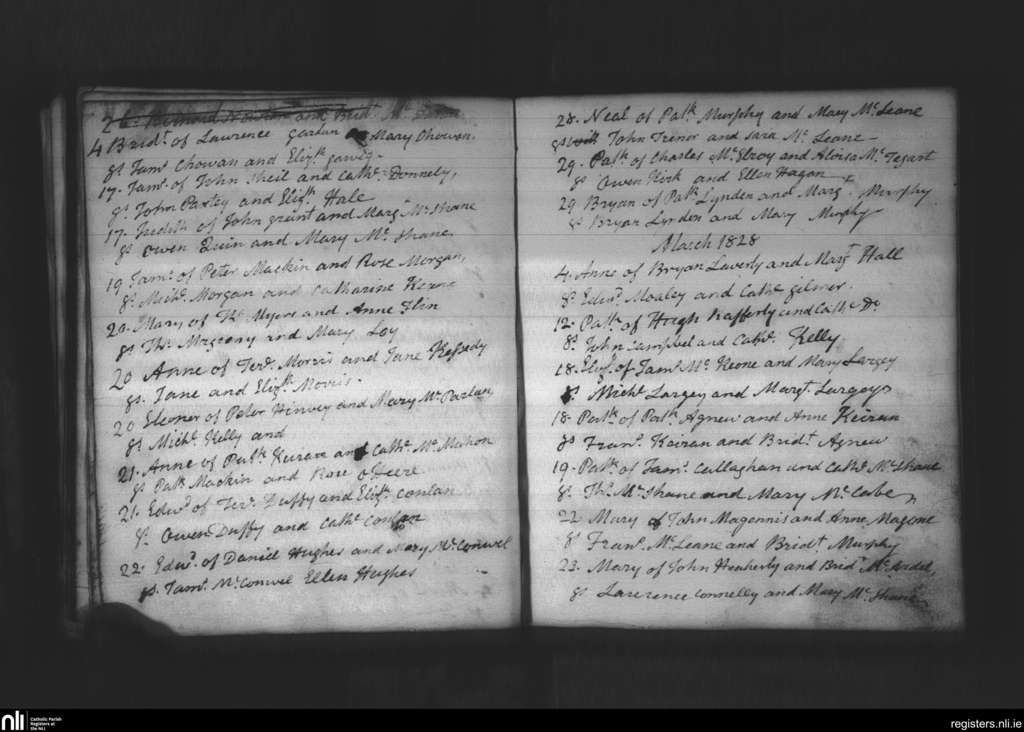 and Brid.t Mc
4 Brid.t of Lawrence gardan Mary Chowen.
gs. Jam.s Chowan and Eliz.th
17. Jam.s of John Sheil and Cath.e Donnely,
gs. John Paxley and Eliz.th Hale
17. Judith of John grant and Marg.t McShane
gs. Owen Quin and Mary Mc Shane
19 Jam.s of Peter Mackin and Rose Morgan,
gs. Mich.l Morgan and Catharine Keane
20. Mary of Th.s Myers and Anne Flin
gs. Th.s and Mary Loy
20 Anne of Ter.e Morris and Jane
gs. Jane and Eliz.th Morris.
20 Eleoner of Peter Hinvey and Mary McParlan,
gs Mich.l Kelly and
21. Anne of Pat.k Kurave and Cath.e McMahon
gs Pat.k Mackin and Rose
21. Edw.d of Ter.e Duffy and Eliz.th Conlan
gs. Owen Duffy and Cath.e Conlan
22. Edw.d of Daniel Hughes and Mary McConwel
gs. Jam.s McConwel Ellen Hughes
28. Neal of Pat.k Murphy and Mary McLeane
gs John Trenor and Sara McLeane
29. Pat.k of Charles McElroy and Aloisa McTegart
gs Owen Kirk and Ellen Hagan
29 Bryan of Pat.k Lynden and Marg.t Murphy
gs Bryan Lynden and Mary Murphy
March 1828
4. Anne of Bryan Laverty and Mary Hall
gs. Edw.d Moaley and Cath.e gilmer.
12. Pat.k of Hugh Rafferty and Cath.e Do
gs. John Campvel and Cath.e Kelly
18. Eliz.h of Jam.s McKeone and Mary Largey
gs. Mich.l Largey and Mar.t Largey
18. Pat.k of Pat.k Agnew and Anne Keiran
gs Fran.s Keiran and Brid.t Agnew
19. Pat.k of Jam.s Callaghan and Cath.e McShane
gs. Th.s McShane and Mary McCabe
22 Mary of John Magennis and Anne Magone
gs Fran.s McLeane and Brid.t Murphy
23. Mary of John Heaherly and Brid.t McArdel,
gs Lawrence Connelly and Mary McShane
nli
Catholic Parish
Registers at
the NLI
registers.nli.ie